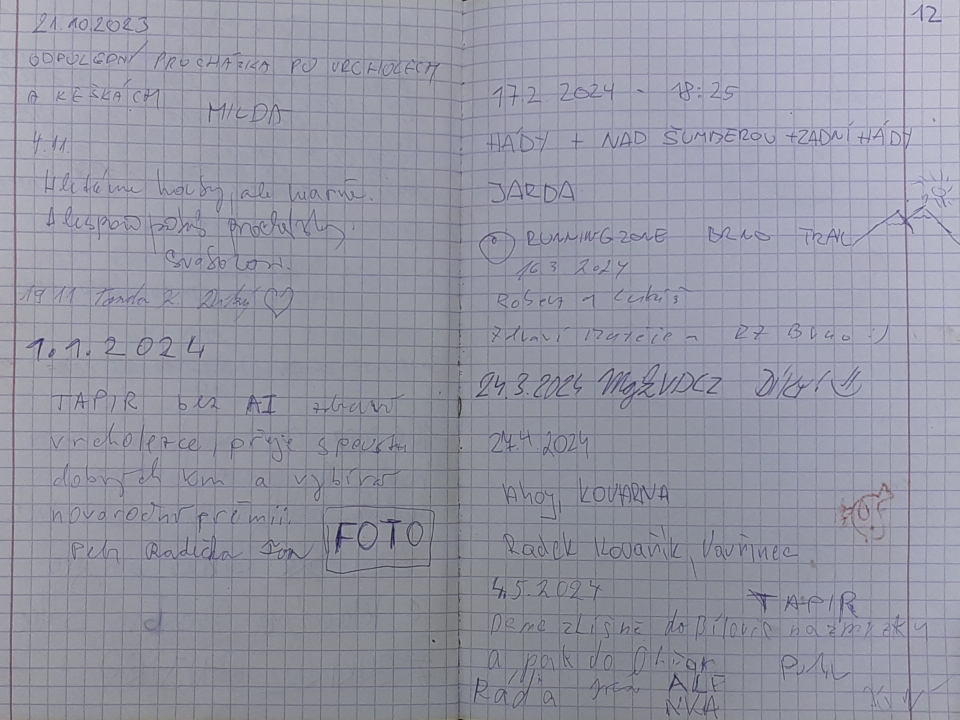 21.10.2023
ODPOLEDNÍ PROCHÁZKA PO VRCHOLECH
A KEŠKÁCH
MILDA
4.11.
Hledáme houby, ale marně.
Alespoň procházky.
19 11
1.1.2024
TAPIR bez AI zdraví
vrcholezce, přeje spoustu
dobrých km a vybírá
novoroční prémii.
Petr Radička
FOTO
12
17.2 2024 - 18:25
HÁDY + NAD ŠUMBEROU + ZADNÍ HÁDY
JARDA
RUNNINGZONE BRNO TRAIL
16 3 2024
Robert a Lukáš
Zdraví z Brno :)
24.3.2024 Díky!
27.4.2024
Ahoj, KOVARNA
Radek Kovařík, Vavřinec
4.5.2024
TAPIR
do Bílovic na zmrzky
a pak do
Radia ALE
NKA